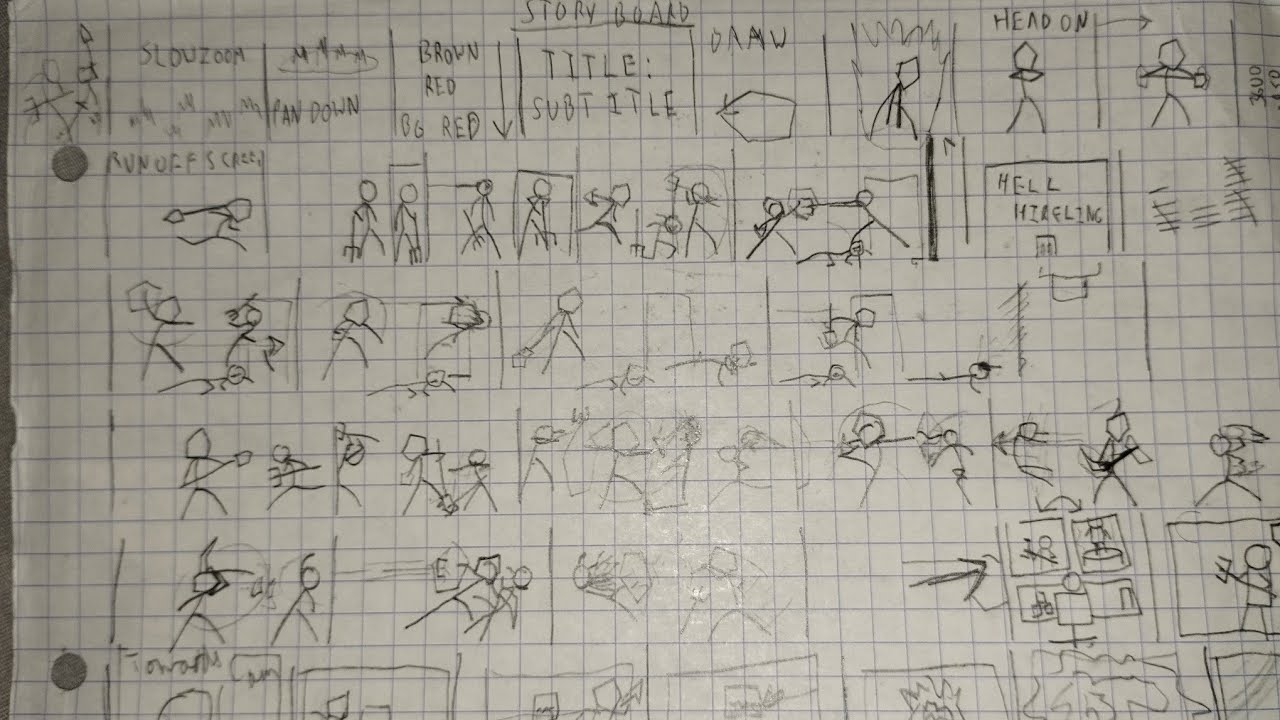 STORY BOARD
SLOWZOOM
PAN DOWN
BROWN
RED
BG RED
TITLE:
SUBTITLE
DRAW
HEAD ON
RUN OFF SCREEN
HELL
HIRELING
Towards